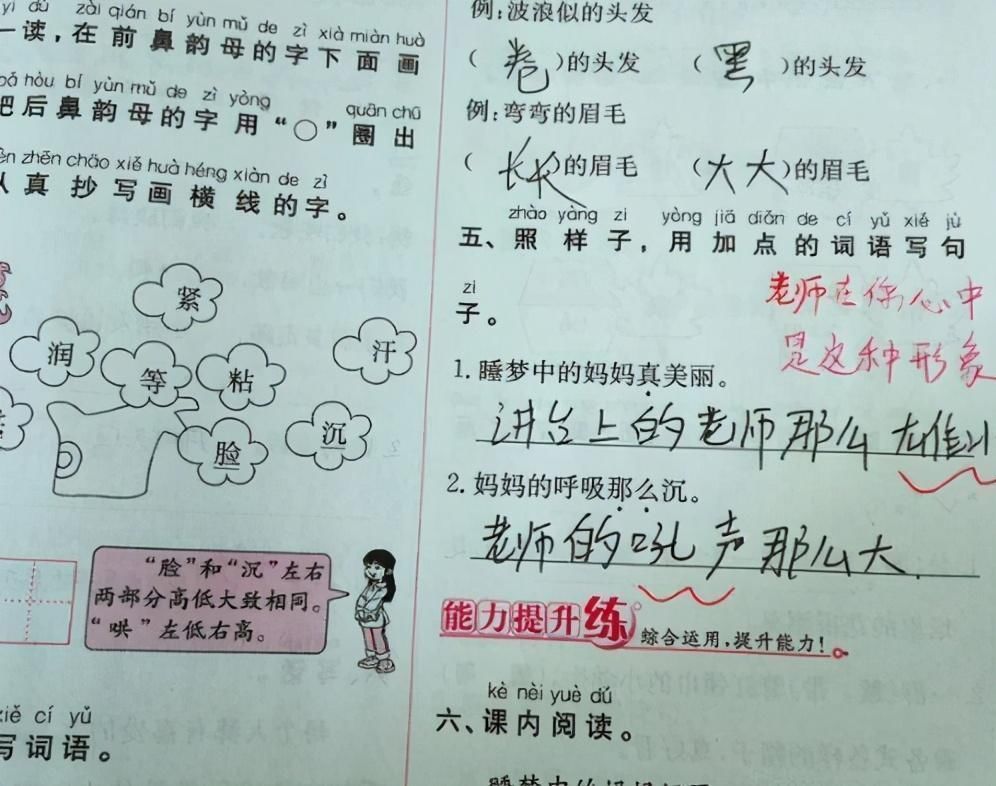 dú zài qián bí yùn mǔ de zì xià miàn huà
一读，在前鼻韵母的字下面画
hòu bí yùn mǔ de zì yòng quān chū
把后鼻韵母的字用“○”圈出
zhēn chāo xiě huà héng xiàn de zì
认真抄写画横线的字。
紧
润
等
粘
汗
脸
沉
“脸”和“沉”左右
两部分高低大致相同。
“哄”左低右高。
xiě cí yǔ
写词语。
例：波浪似的头发
（卷）的头发 （黑）的头发
例：弯弯的眉毛
（长长）的眉毛 （大大）的眉毛
zhào yàng zi yòng jiā diǎn de cí yǔ xiě jù
五、照样子，用加点的词语写句
zi
子。
老师在你心中
是这种形象
1. 睡梦中的妈妈真美丽。
讲台上的老师那么
2. 妈妈的呼吸那么沉。
老师的吼声那么大.
能力提升练 综合运用，提升能力！
kè nèi yuè dú
六、课内阅读。